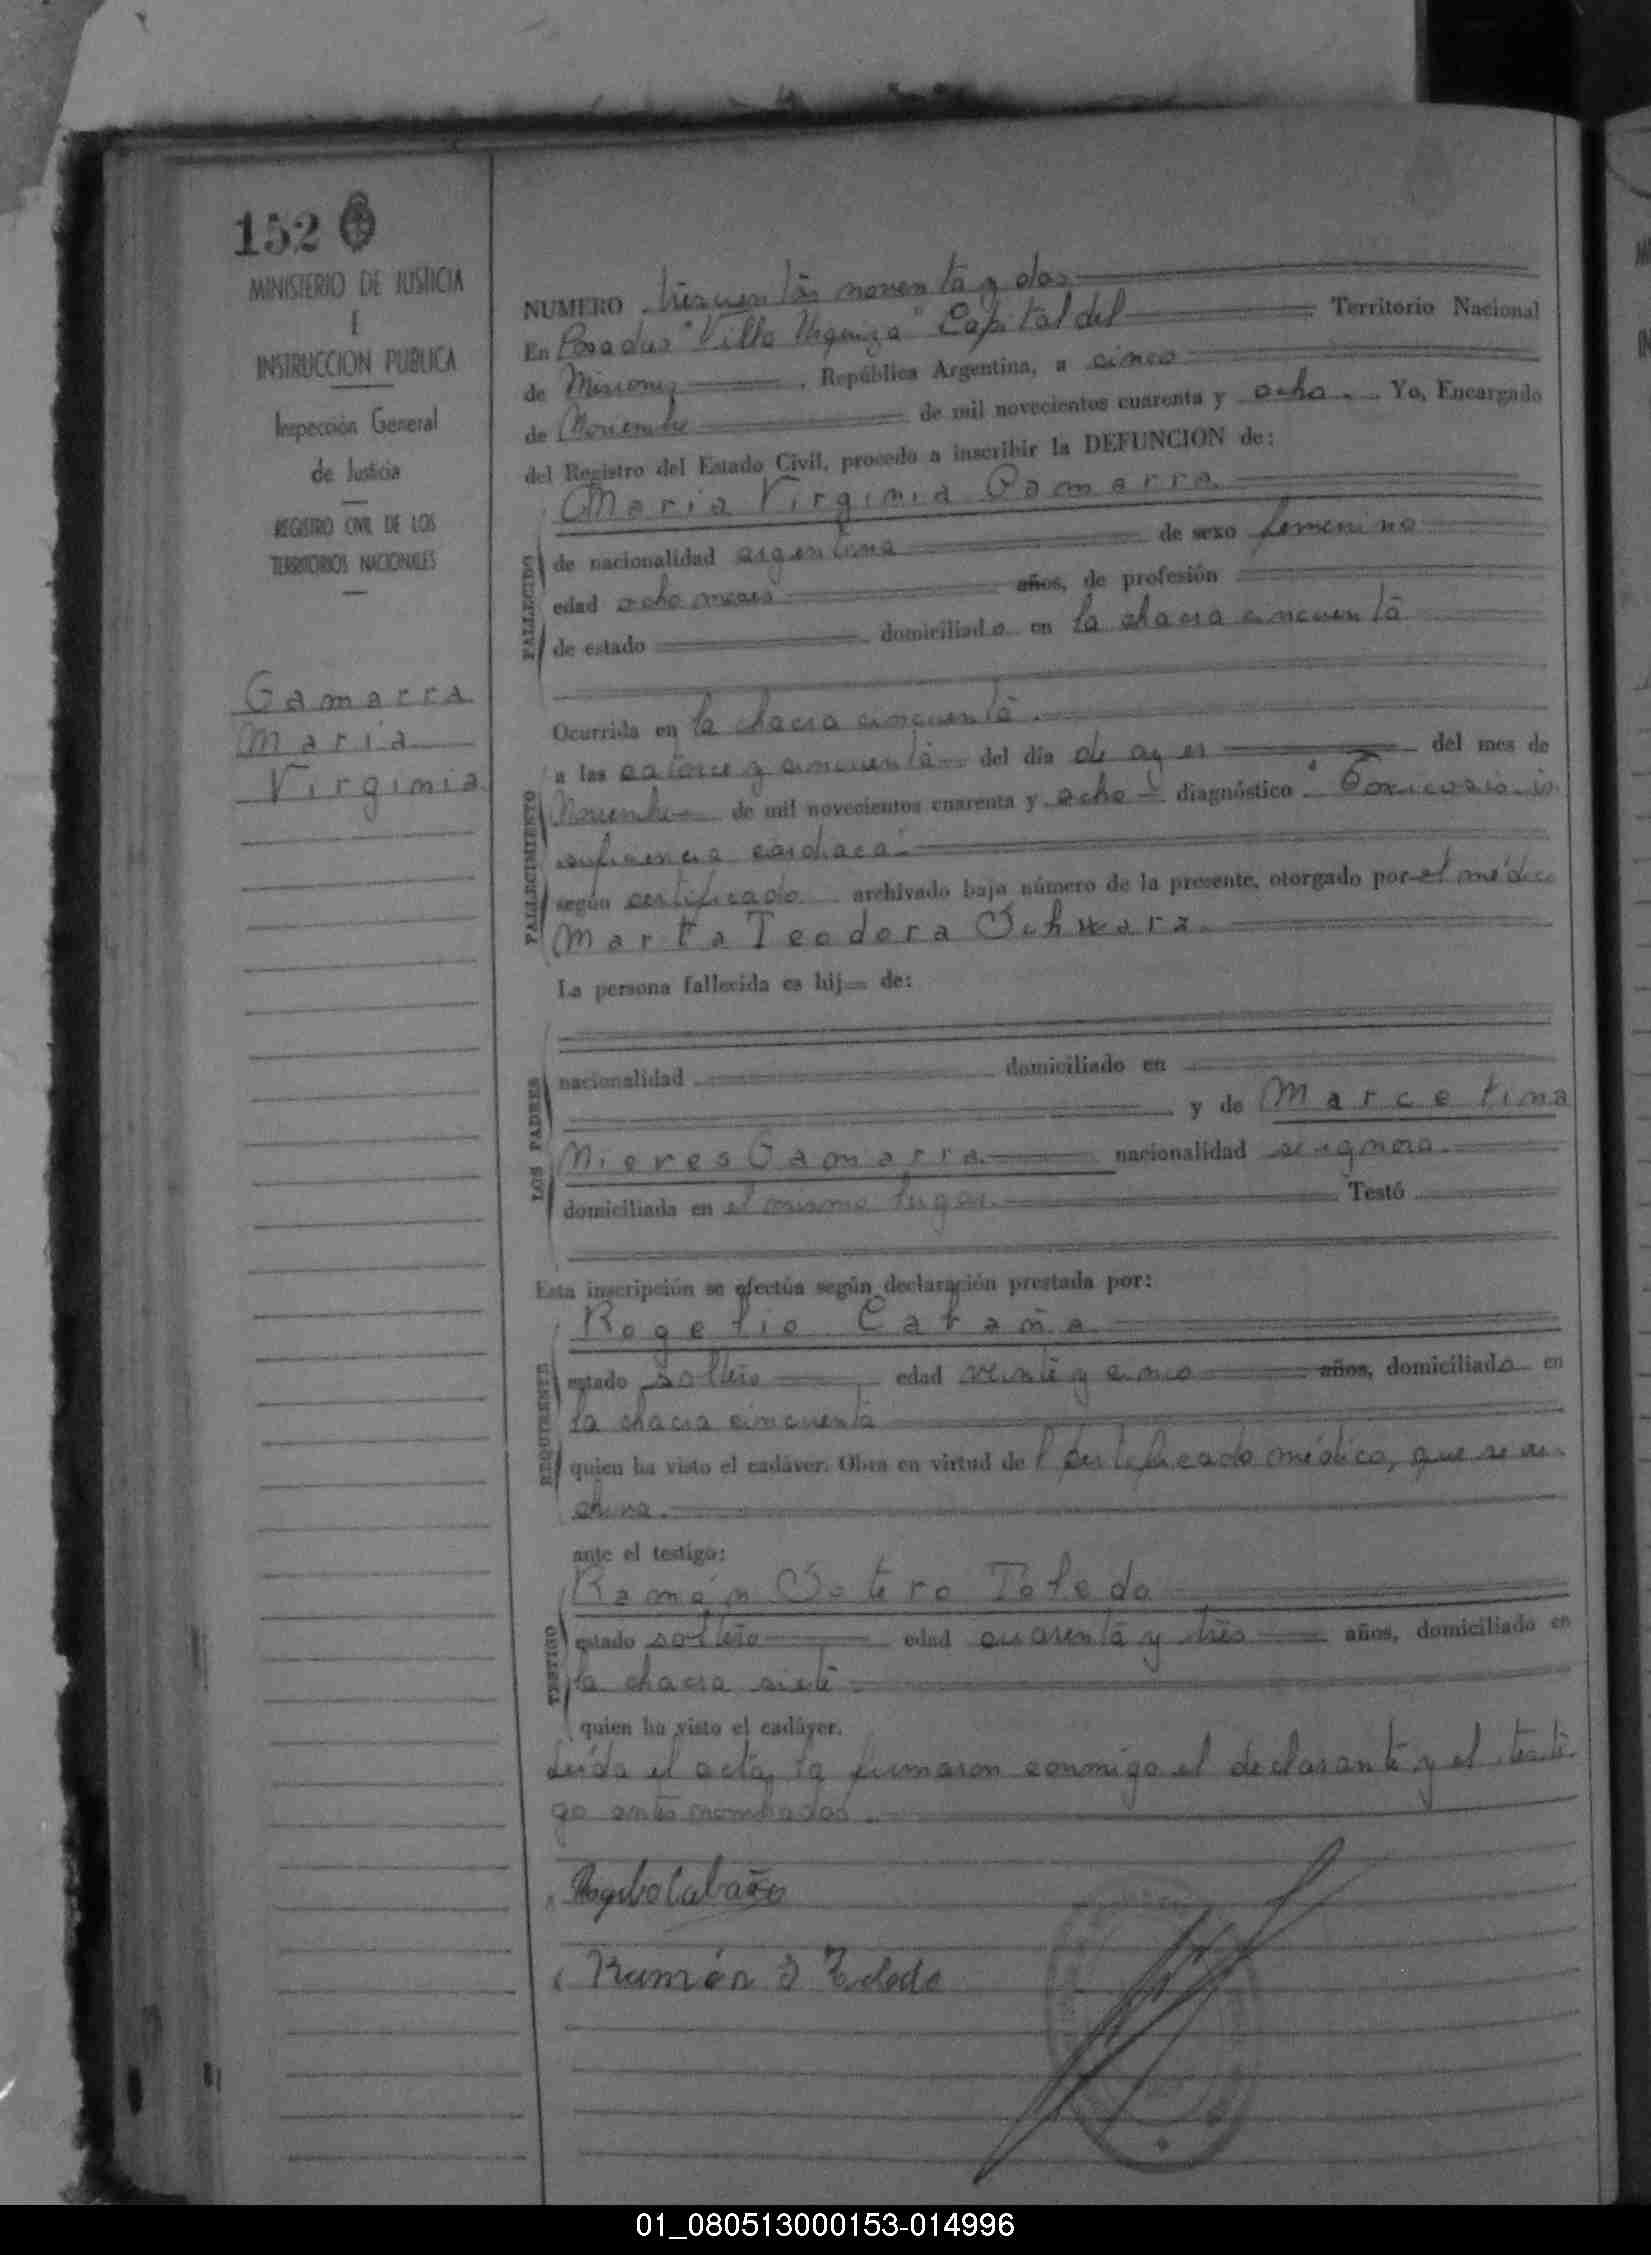 152
MINISTERIO DE JUSTICIA
E
INSTRUCCION PUBLICA
Inspección General
de Justicia
REGISTRO CIVIL DE LOS
TERRITORIOS NACIONALES
Gamarra
Maria
Virginia
NUMERO trescientos noventa y dos
En Posadas "Villa Urquiza" Capital del Territorio Nacional
de Misiones, República Argentina, a cinco
de Noviembre de mil novecientos cuarenta y ocho. Yo, Encargado
del Registro del Estado Civil, procedo a inscribir la DEFUNCION de:
Maria Virginia Gamarra
FALLECIDO
de nacionalidad argentina de sexo femenino
edad ocho meses años, de profesión
de estado domiciliada en la chacra cincuenta
Ocurrida en la chacra cincuenta.
FALLECIMIENTO
a las catorce y cincuenta del día de ayer del mes de
Noviembre de mil novecientos cuarenta y ocho diagnóstico: Toxicosis in
suficiencia cardiaca.
según certificado archivado bajo número de la presente, otorgado por el médico
Marta Teodora Schwarz.
La persona fallecida es hij de:
LOS PADRES
nacionalidad domiciliado en
y de Marcelina
Nieres Gamarra. nacionalidad
domiciliada en el mismo lugar. Testó
Esta inscripción se efectúa según declaración prestada por:
REQUIRENTE
Rogelio Cabaña
estado soltero edad veinte y cinco años, domiciliado en
la chacra cincuenta
quien ha visto el cadáver. Obra en virtud del certificado médico, que se ar-
chiva.
ante el testigo:
TESTIGO
Ramón Sotero Toledo
estado soltero edad cuarenta y tres años, domiciliado en
la chacra siete
quien ha visto el cadáver.
Leída el acta, la firmaron conmigo el declarante y el testi-
go antes nombrados.
Rogelio Cabaña
Ramón S Toledo
01_080513000153-014996